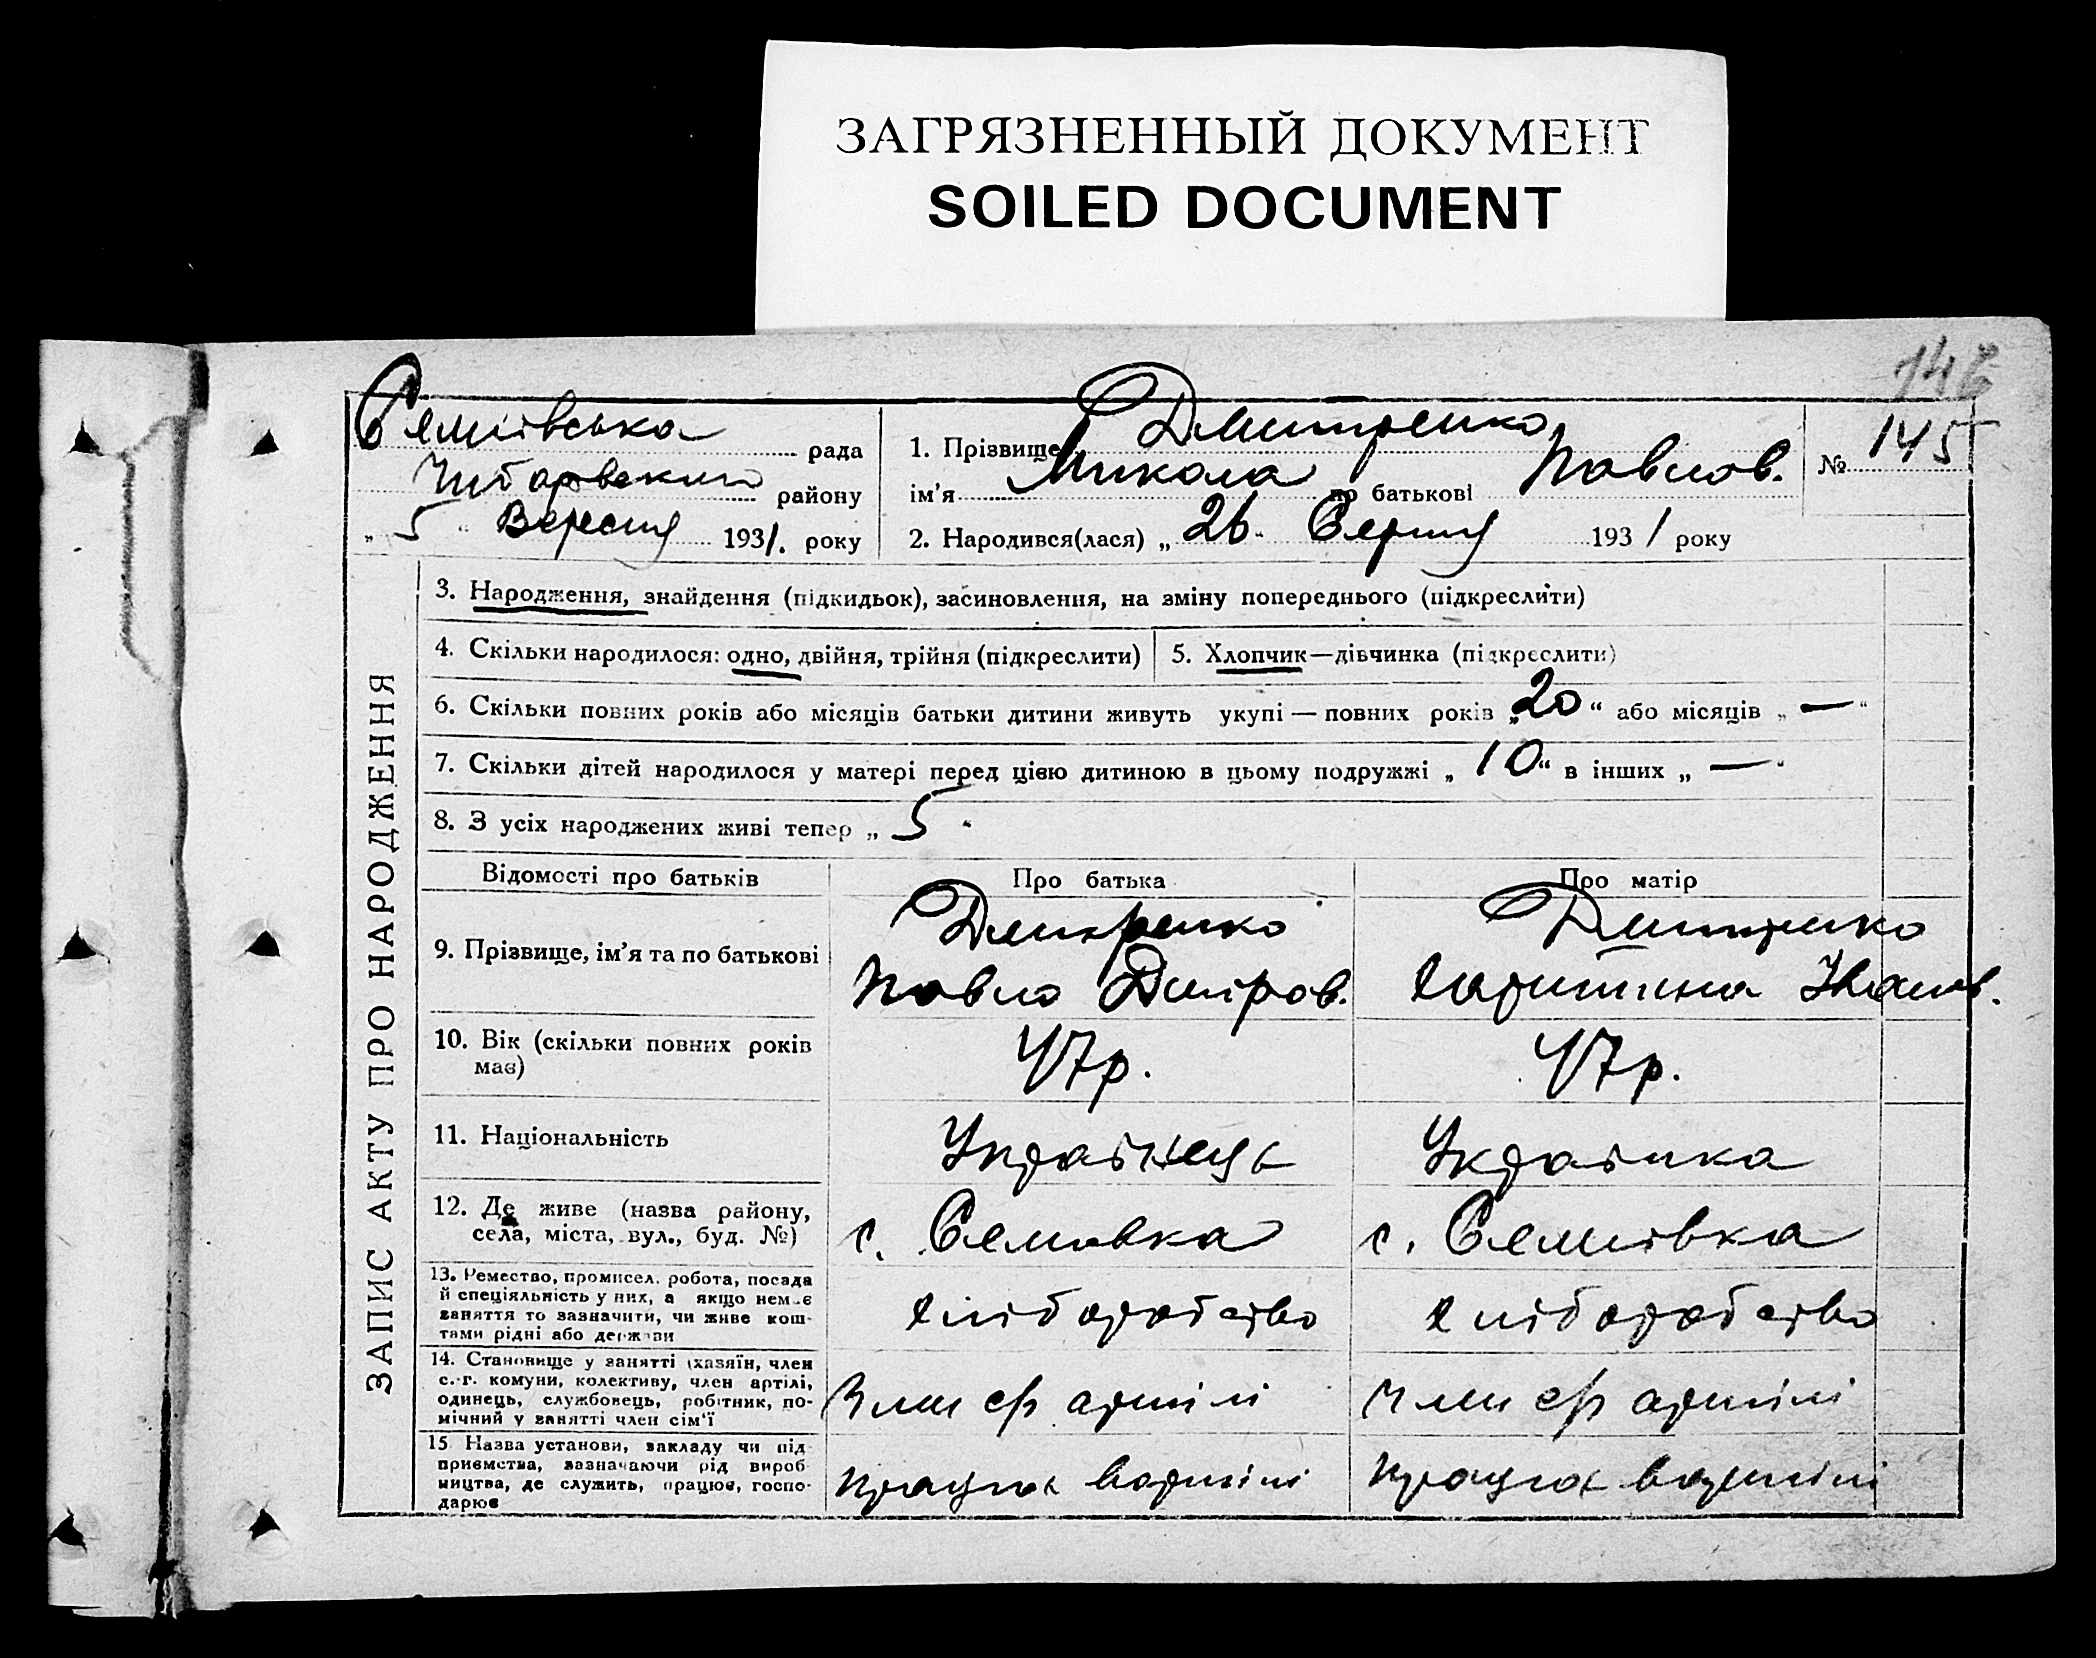 ЗАГРЯЗНЕННЫЙ ДОКУМЕНТ
SOILED DOCUMENT
145
Семиівська рада
району
„ 5 “ Вересня 1931. року
1. Прізвище Дмитренко
ім'я Микола по батькові Павлов.
№ 145
2. Народився(лася) „ 26 “ Серпня 1931 року
ЗАПИС АКТУ ПРО НАРОДЖЕННЯ
3. Народження, знайдення (підкидьок), засиновлення, на зміну попереднього (підкреслити)
4. Скільки народилося: одно, двійня, трійня (підкреслити)
5. Хлопчик—дівчинка (підкреслити)
6. Скільки повних років або місяців батьки дитини живуть укупі — повних років „ 20 “ або місяців „ — “
7. Скільки дітей народилося у матері перед цією дитиною в цьому подружжі „ 10 “ в інших „ — “
8. З усіх народжених живі тепер „ 5 “
Відомості про батьків
Про батька
Про матір
9. Прізвище, ім'я та по батькові
Дмитренко
Павло Дмітров.
Дмитренко
Харитина Іванов.
10. Вік (скільки повних років
має)
47р.
47р.
11. Національність
Українець
Українка
12. Де живе (назва району,
села, міста, вул., буд. №)
с. Семиівка
с. Семиівка
13. Ремество, промисел, робота, посада
й спеціяльність у них, а якщо немає
заняття то зазначити, чи живе кош-
тами рідні або держави
хліборобство
хліборобство
14. Становище у занятті (хазяїн, член
с.-г. комуни, колективу, член артілі,
одинець, службовець, робітник, по-
мічний у занятті член сім'ї
Член с/г артілі
Член с/г артілі
15 Назва установи, закладу чи під-
приємства, зазначаючи рід вироб-
ництва, де служить, працює, госпо-
дарює
працює в артілі
працює в артілі